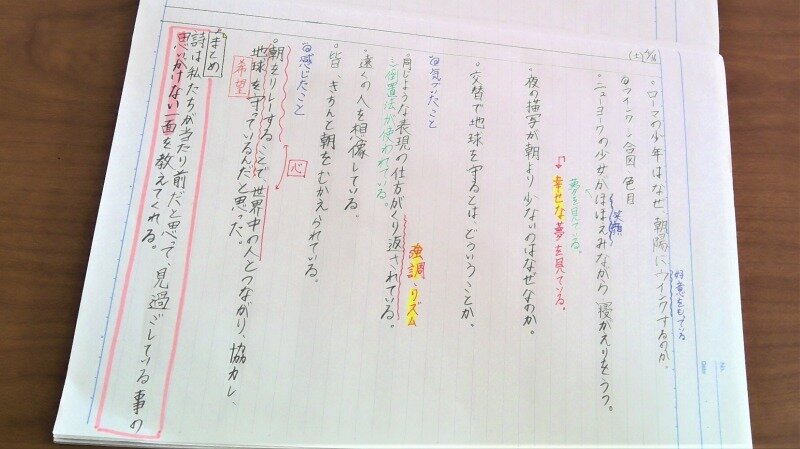 4/16
(土)
・ローマの少年はなぜ、朝陽にウインクするのか。
好意をもっている
◎ウインク…合図、色目
・ニューヨークの少女がほほえみながら寝がえりをうつ。
笑顔
夢を見ている。
幸せな夢を見ている。
・夜の描写が朝より少ないのはなぜなのか。
・交替で地球を守るとはどういうことか。
◎気づいたこと
・同じような表現の仕方がくり返されている。
強調、リズム
倒置法が使われている。
・遠くの人を想像している。
・皆、きちんと朝をむかえられている。
◎感じたこと
心
・朝をリレーすることで世界中の人とつながり、協力し、
地球を守っているんだと思った。
希望
まとめ
詩は私たちが当たり前だと思って、見過ごしている事の
思いがけない一面を教えてくれる。
No.
Date